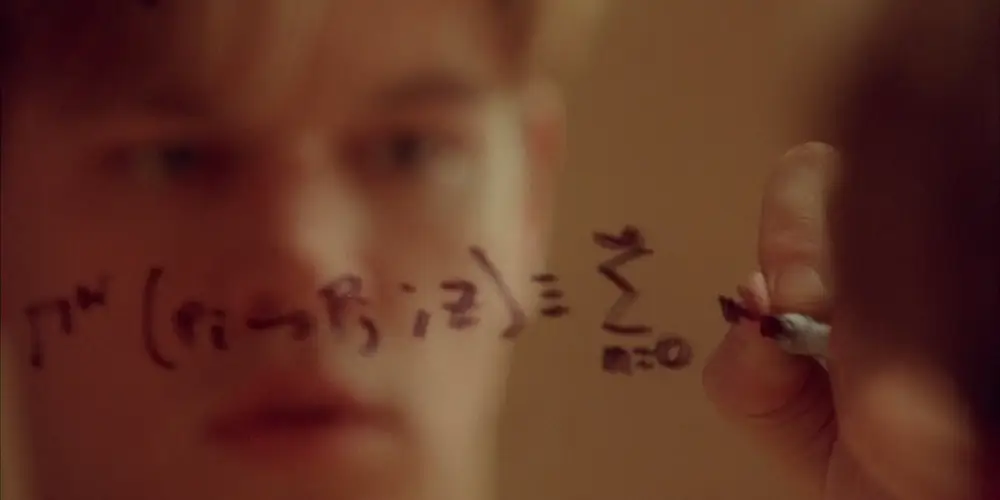 Γ^w (P_i → P_j ; z) ≡ ∑_{n=0}^∞